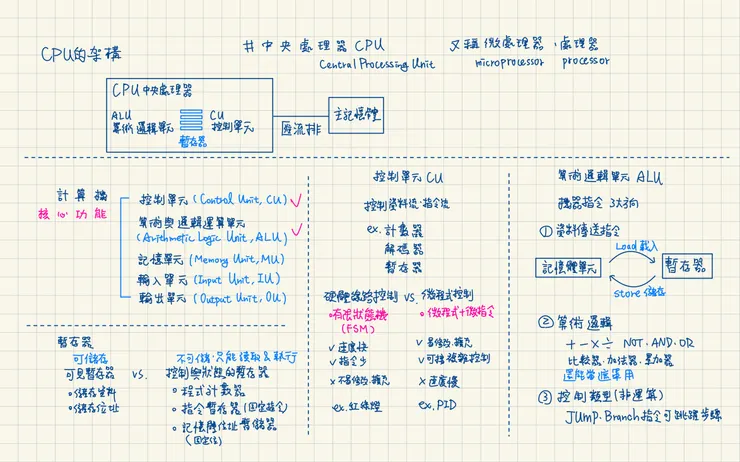 CPU的架構
#中央處理器 CPU 又稱微處理器、處理器
Central Processing Unit microprocessor processor
CPU中央處理器
ALU CU
算術邏輯單元 控制單元
暫存器
匯流排
主記憶體
計算機
核心功能
控制單元(Control Unit, CU)
算術與邏輯運算單元
(Arithmetic Logic Unit, ALU)
記憶單元(Memory Unit, MU)
輸入單元(Input Unit, IU)
輸出單元(Output Unit, OU)
暫存器
可儲存
可見暫存器
• 儲存資料
• 儲存位址
vs.
不可儲、只能讀取&執行
控制與狀態的暫存器
• 程式計數器
• 指令暫存器(固定指令)
• 記憶體位址暫儲器
(固定位)
控制單元 CU
控制資料流、指令流
ex. 計數器
解碼器
暫存器
硬體線路控制 vs. 微程式控制
• 有限狀態機
(FSM)
✓ 速度快
✓ 指令少
✗ 不易修改、擴充
ex. 紅綠燈
• 微程式+微指令
✓ 易修改、擴充
✓ 可接複雜控制
✗ 速度慢
ex. PID
算術邏輯單元 ALU
機器指令 3大方向
① 資料傳送指令
Load 載入
記憶體單元 暫存器
store 儲存
② 算術邏輯
+ − × ÷ NOT. AND. OR
比較器、加法器、累加器
③ 控制類型(非運算)
JUMP、Branch指令可跳躍步驟